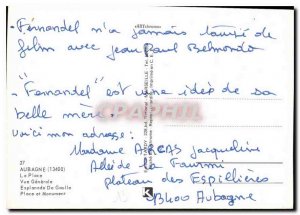 Fernandel n'a jamais tourné de
film avec Jean Paul Belmondo
"Fernandel" est une idée de sa
belle mère.
Voici mon adresse:
Madame ARCAS Jacqueline
Allée de la Fourmi
plateau des Espillières
13400 Aubagne
27
AUBAGNE (13400)
La Place
Vue Générale
Esplanade De Gaulle
Place et Monument